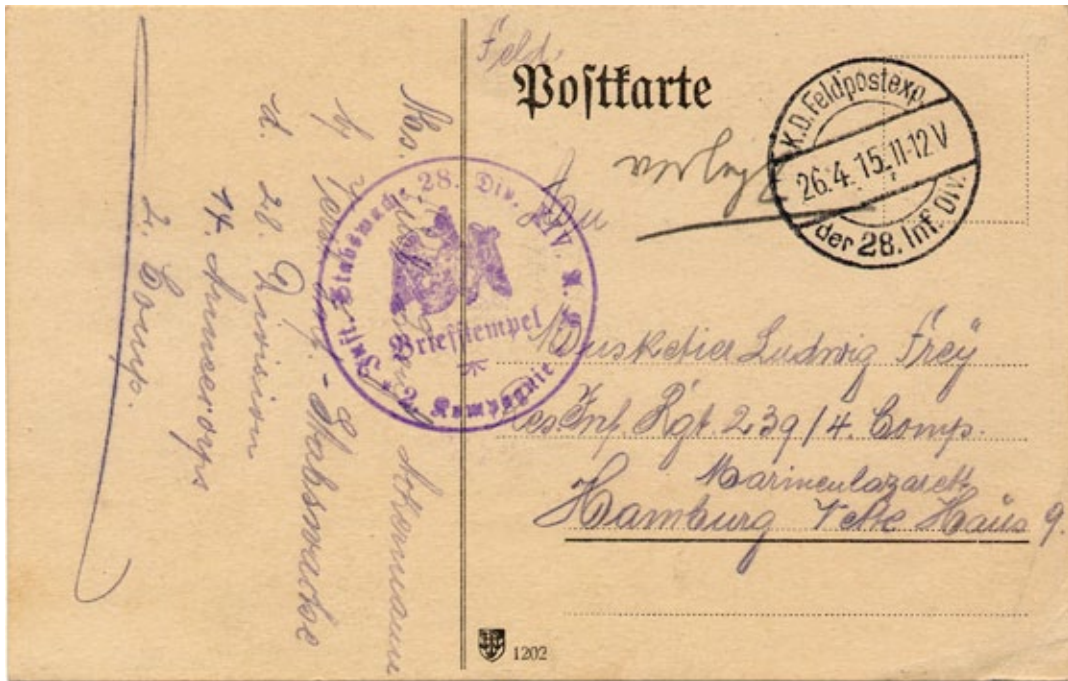 Feld
Postkarte
K.D. Feldpostexp.
26.4.15.11-12V
der 28. Inf. DIV.
An
Musketier Ludwig Frey
Res Inf. Rgt. 239/4. Comp.
Marinelazarett
Hamburg Haus 9.
Stabswache 28. Div. XIV. A. K.
Briefstempel
* 2. Kompagnie *
Abs.
Ackermann
Stabswache
d. 28. Division
14. Armeecorps
2. Comp.
1202